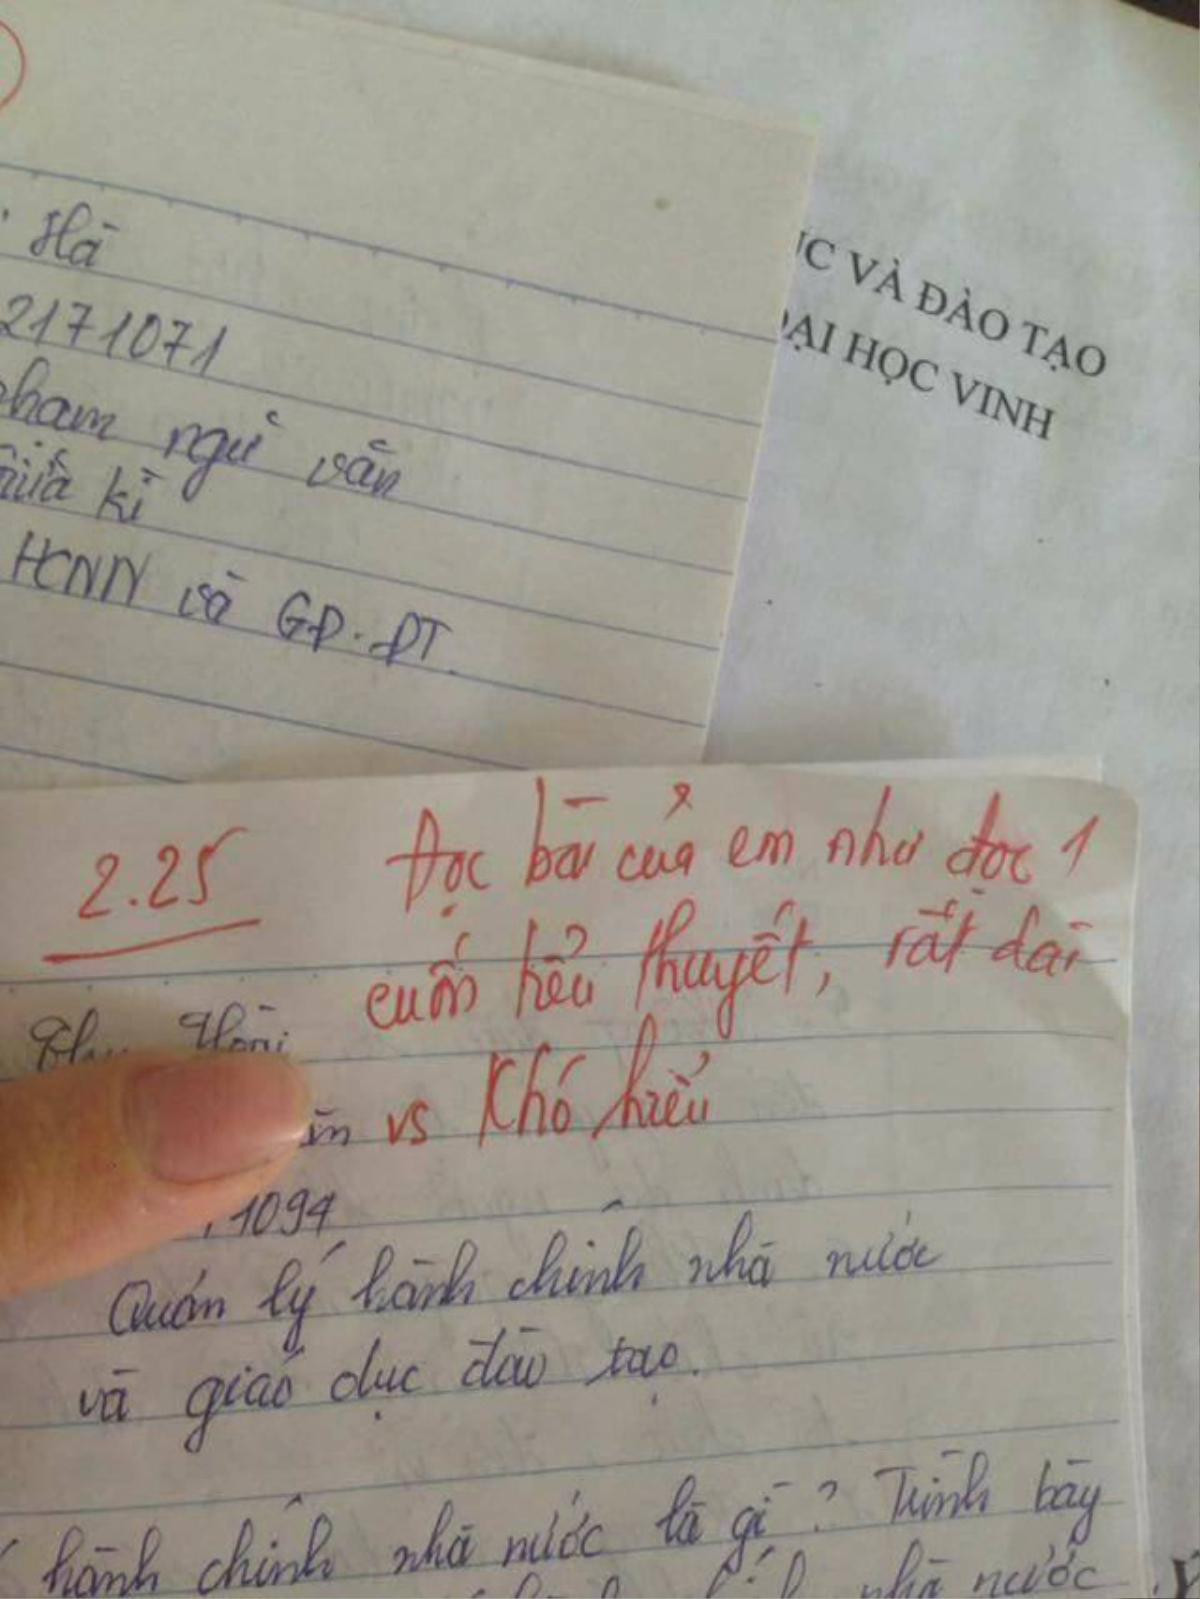 Hà
2171071
phạm ngữ văn
giữa kì
HCNN và GD.ĐT
ỤC VÀ ĐÀO TẠO
ĐẠI HỌC VINH
2.25
Đọc bài của em như đọc 1
cuốn tiểu thuyết, rất dài
vs Khó hiểu
Hoài
1094
Quản lý hành chính nhà nước
và giáo dục đào tạo.
hành chính nhà nước là gì? Trình bày
nhà nước